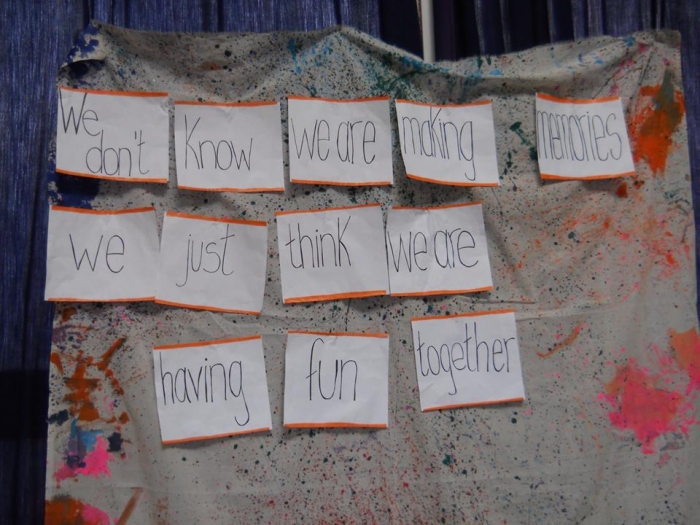 We don't Know we are making memories
we just think we are
having fun together